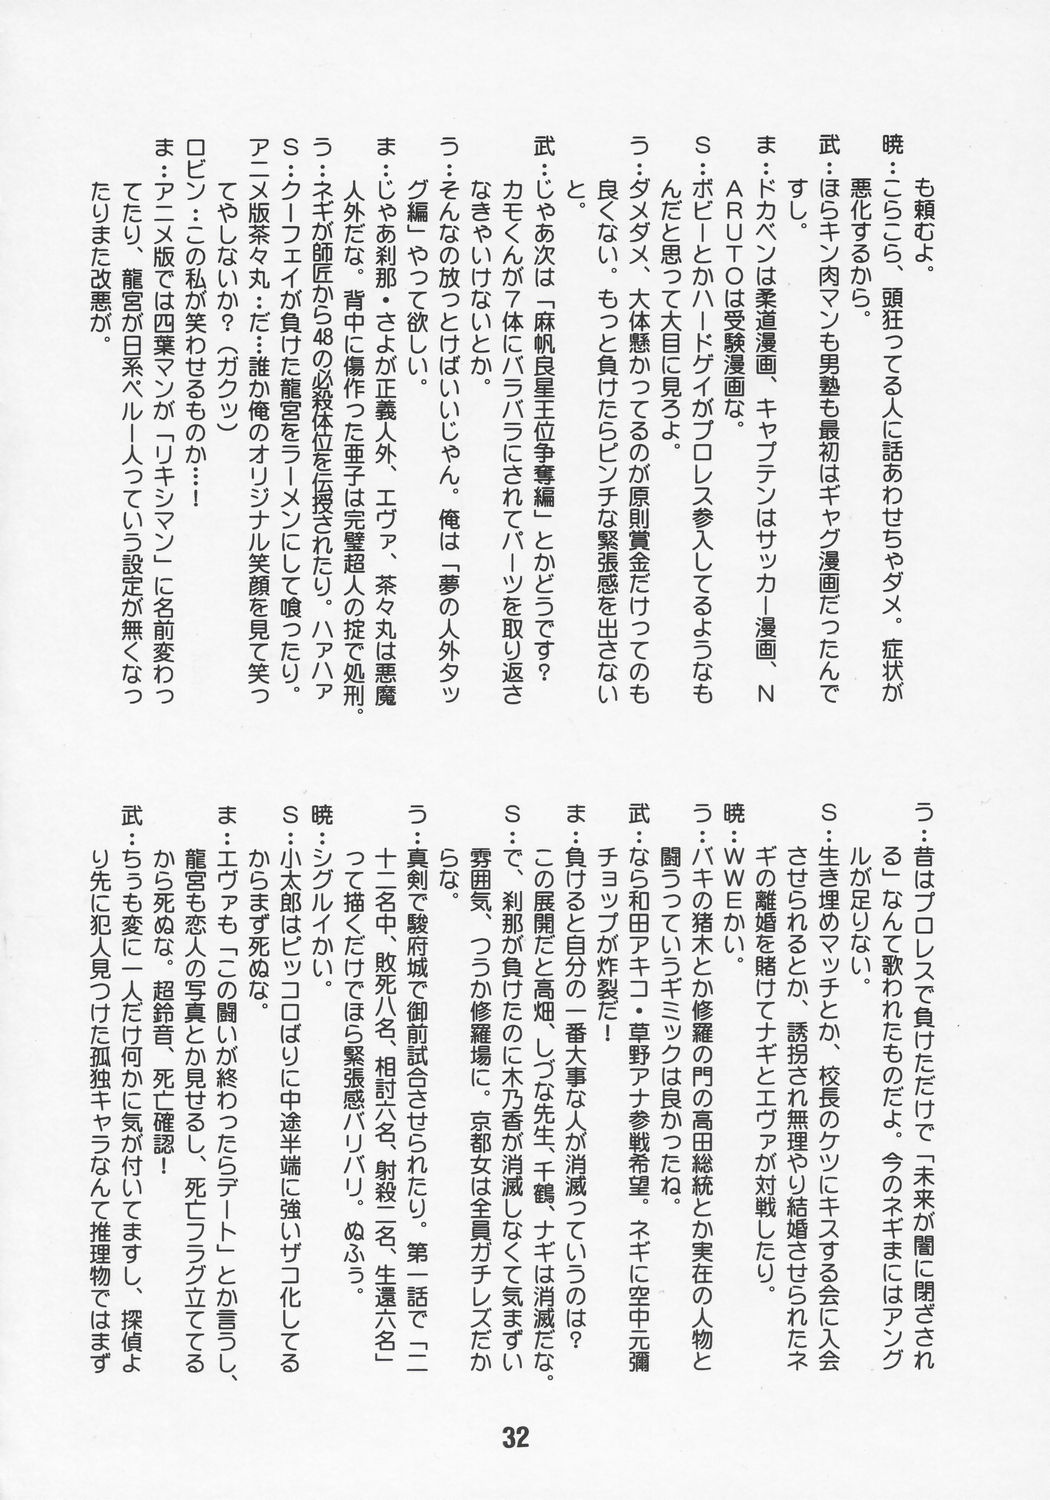 も頼むよ。
暁：こらこら、頭狂ってる人に話あわせちゃダメ。症状が
悪化するから。
武：ほらキン肉マンも男塾も最初はギャグ漫画だったんで
すし。
ま：ドカベンは柔道漫画、キャプテンはサッカー漫画、Ｎ
ＡＲＵＴＯは受験漫画な。
Ｓ：ボビーとかハードゲイがプロレス参入してるようなも
んだと思って大目に見ろよ。
う：ダメダメ、大体懸かってるのが原則賞金だけってのも
良くない。もっと負けたらピンチな緊張感を出さない
と。
武：じゃあ次は「麻帆良星王位争奪編」とかどうです？
カモくんが７体にバラバラにされてパーツを取り返さ
なきゃいけないとか。
う：そんなの放っとけばいいじゃん。俺は「夢の人外タッ
グ編」やって欲しい。
ま：じゃあ刹那・さよが正義人外、エヴァ、茶々丸は悪魔
人外だな。背中に傷作った亜子は完璧超人の掟で処刑。
う：ネギが師匠から48の必殺体位を伝授されたり。ハァハァ
Ｓ：クーフェイが負けた龍宮をラーメンにして喰ったり。
アニメ版茶々丸：だ…誰か俺のオリジナル笑顔を見て笑っ
てやしないか？（ガクッ）
ロビン：この私が笑わせるものか…！
ま：アニメ版では四葉マンが「リキシマン」に名前変わっ
てたり、龍宮が日系ペルー人っていう設定が無くなっ
たりまた改悪が。
う：昔はプロレスで負けただけで「未来が闇に閉ざされ
る」なんて歌われたものだよ。今のネギまにはアング
ルが足りない。
Ｓ：生き埋めマッチとか、校長のケツにキスする会に入会
させられるとか、誘拐され無理やり結婚させられたネ
ギの離婚を賭けてナギとエヴァが対戦したり。
暁：ＷＷＥかい。
う：バキの猪木とか修羅の門の高田総統とか実在の人物と
闘うっていうギミックは良かったね。
武：なら和田アキコ・草野アナ参戦希望。ネギに空中元彌
チョップが炸裂だ！
ま：負けると自分の一番大事な人が消滅っていうのは？
この展開だと高畑、しづな先生、千鶴、ナギは消滅だな。
Ｓ：で、刹那が負けたのに木乃香が消滅しなくて気まずい
雰囲気、つうか修羅場に。京都女は全員ガチレズだか
らな。
う：真剣で駿府城で御前試合させられたり。第一話で「二
十二名中、敗死八名、相討六名、射殺二名、生還六名」
って描くだけでほら緊張感バリバリ。ぬふぅ。
暁：シグルイかい。
Ｓ：小太郎はピッコロばりに中途半端に強いザコ化してる
からまず死ぬな。
ま：エヴァも「この闘いが終わったらデート」とか言うし、
龍宮も恋人の写真とか見せるし、死亡フラグ立ててる
から死ぬな。超鈴音、死亡確認！
武：ちぅも変に一人だけ何かに気が付いてますし、探偵よ
り先に犯人見つけた孤独キャラなんて推理物ではまず
32